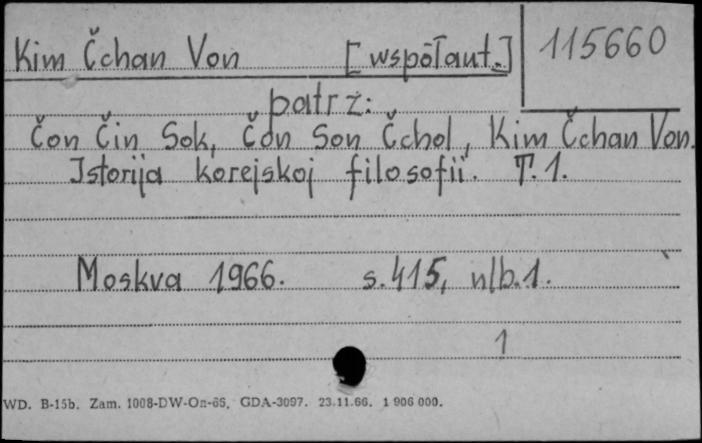 Kim Čchan Von [współaut.] 115660
patrz:
Čon Čin Sok, Čon Son Čchol, Kim Čchan Von.
Istorija korejskoj filosofii. T. 1.
Moskva 1966. s. 415, nlb. 1.
1
WD. B-15b. Zam. 1008-DW-On-65. GDA-3097. 23.11.66. 1 906 000.